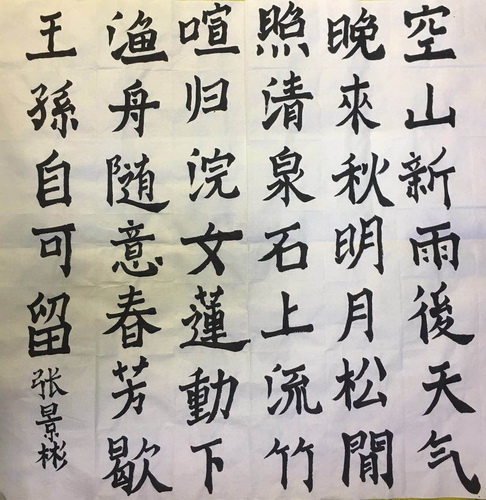 空山新雨後天气
晚來秋明月松間
照清泉石上流竹
喧归浣女蓮動下
渔舟随意春芳歇
王孫自可留
张景彬